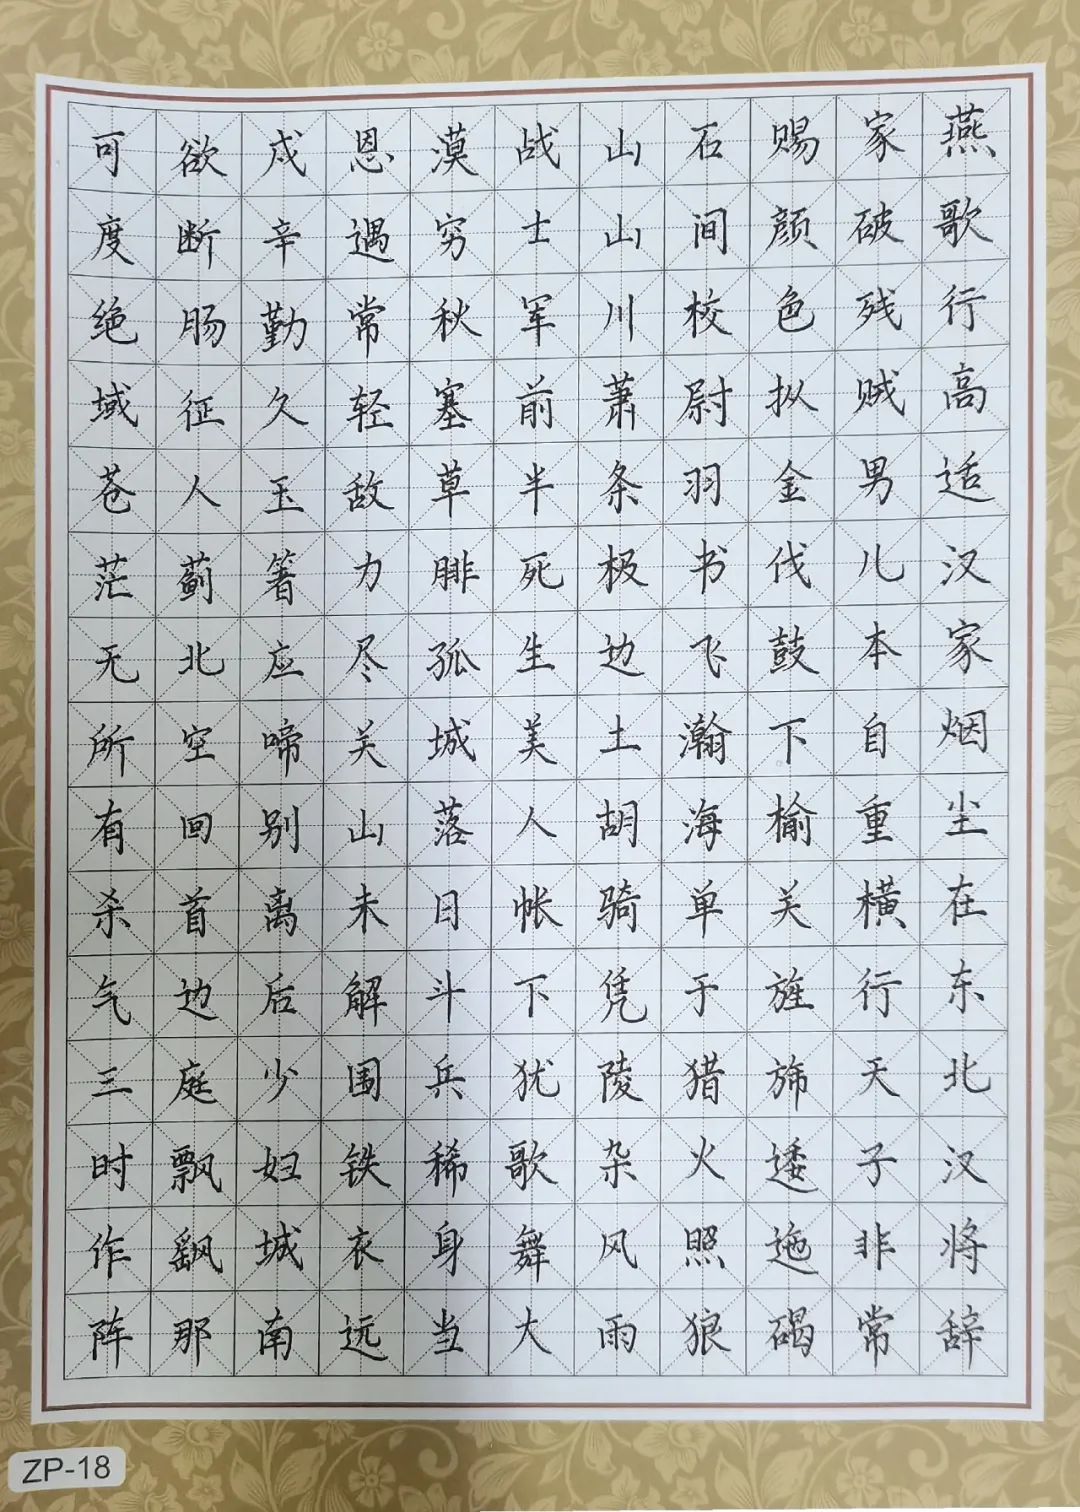 燕歌行高适汉家烟尘在东北汉将辞
家破残贼男儿本自重横行天子非常
赐颜色摐金伐鼓下榆关旌旆逶迤碣
石间校尉羽书飞瀚海单于猎火照狼
山山川萧条极边土胡骑凭陵杂风雨
战士军前半死生美人帐下犹歌舞大
漠穷秋塞草腓孤城落日斗兵稀身当
恩遇常轻敌力尽关山未解围铁衣远
戍辛勤久玉箸应啼别离后少妇城南
欲断肠征人蓟北空回首边庭飘飖那
可度绝域苍茫无所有杀气三时作阵
ZP-18